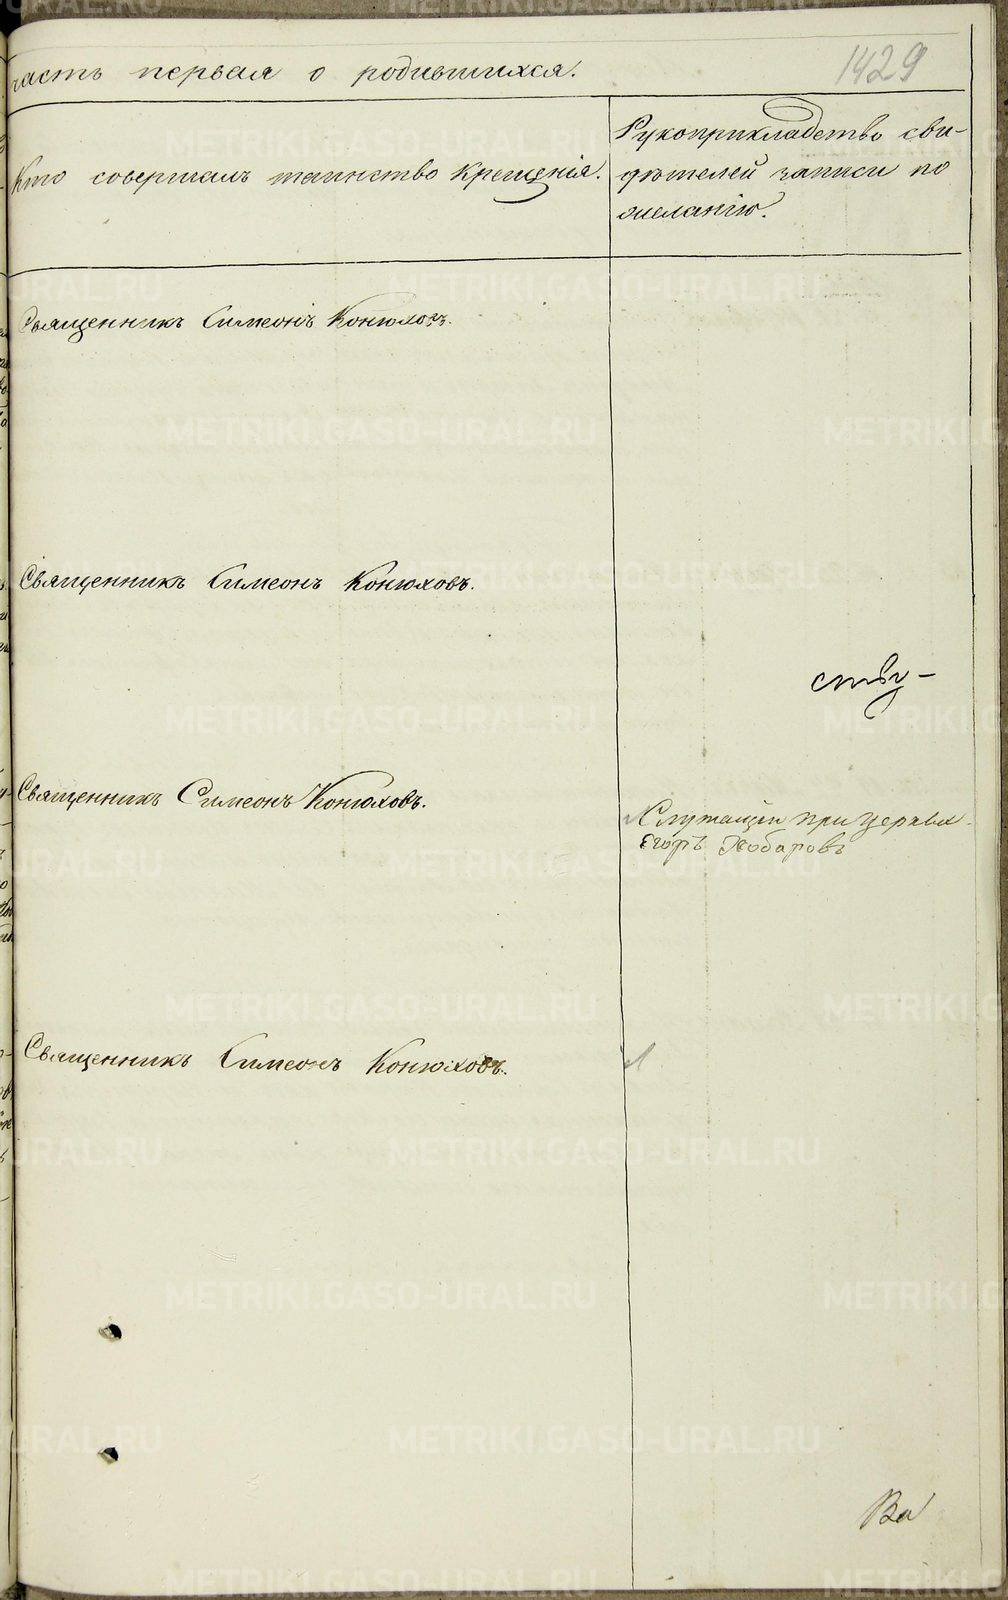 часть первая о родившихся.
1429
Кто совершалъ таинство крещенія.
Рукоприкладство сви-
дѣтелей записи по
желанію.
Священникъ Симеонъ Конюховъ.
Священникъ Симеонъ Конюховъ.
ству-
Священникъ Симеонъ Конюховъ.
Служащій при церкви
Егоръ
Священникъ Симеонъ Конюховъ.
Ва
METRIKI.GASO-URAL.RU